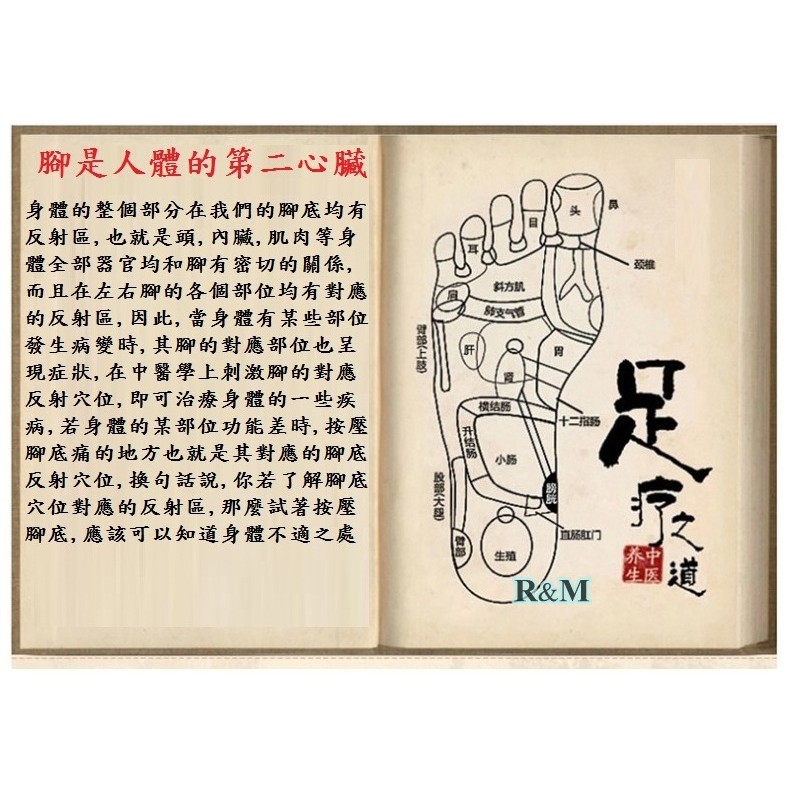 腳是人體的第二心臟
身體的整個部分在我們的腳底均有
反射區,也就是頭,內臟,肌肉等身
體全部器官均和腳有密切的關係,
而且在左右腳的各個部位均有對應
的反射區,因此,當身體有某些部位
發生病變時,其腳的對應部位也呈
現症狀,在中醫學上刺激腳的對應
反射穴位,即可治療身體的一些疾
病,若身體的某部位功能差時,按壓
腳底痛的地方也就是其對應的腳底
反射穴位,換句話說,你若了解腳底
穴位對應的反射區,那麼試著按壓
腳底,應該可以知道身體不適之處
头
鼻
目
耳
颈椎
肩
斜方肌
肺支气管
臂部(上肢)
肝
胃
肾
横结肠
十二指肠
升结肠
小肠
股部(大腿)
膀胱
直肠肛门
臀部
生殖
R&M
足疗之道
中医
养生